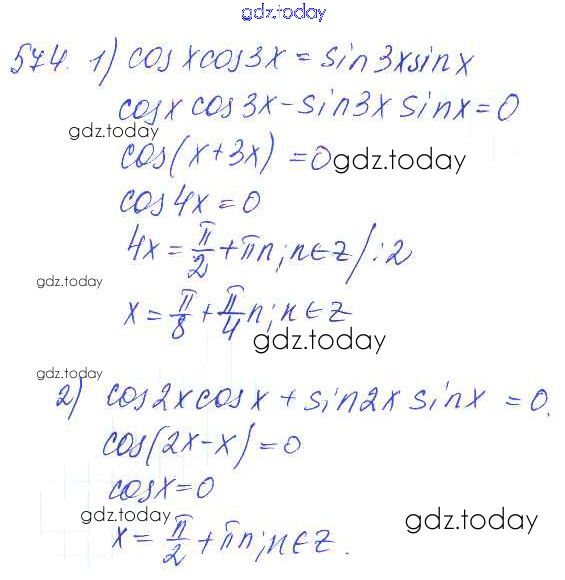 gdz.today
574. 1) cos x cos 3x = sin 3x sin x
cos x cos 3x - sin 3x sin x = 0
gdz.today
cos(x+3x) = 0 gdz.today
cos 4x = 0
4x = π/2 + πn; n∈Z /:2
gdz.today
x = π/8 + π/4 n; n∈Z
gdz.today
gdz.today
2) cos 2x cos x + sin 2x sin x = 0.
cos(2x-x) = 0
cos x = 0
gdz.today gdz.today
x = π/2 + πn; n∈Z.